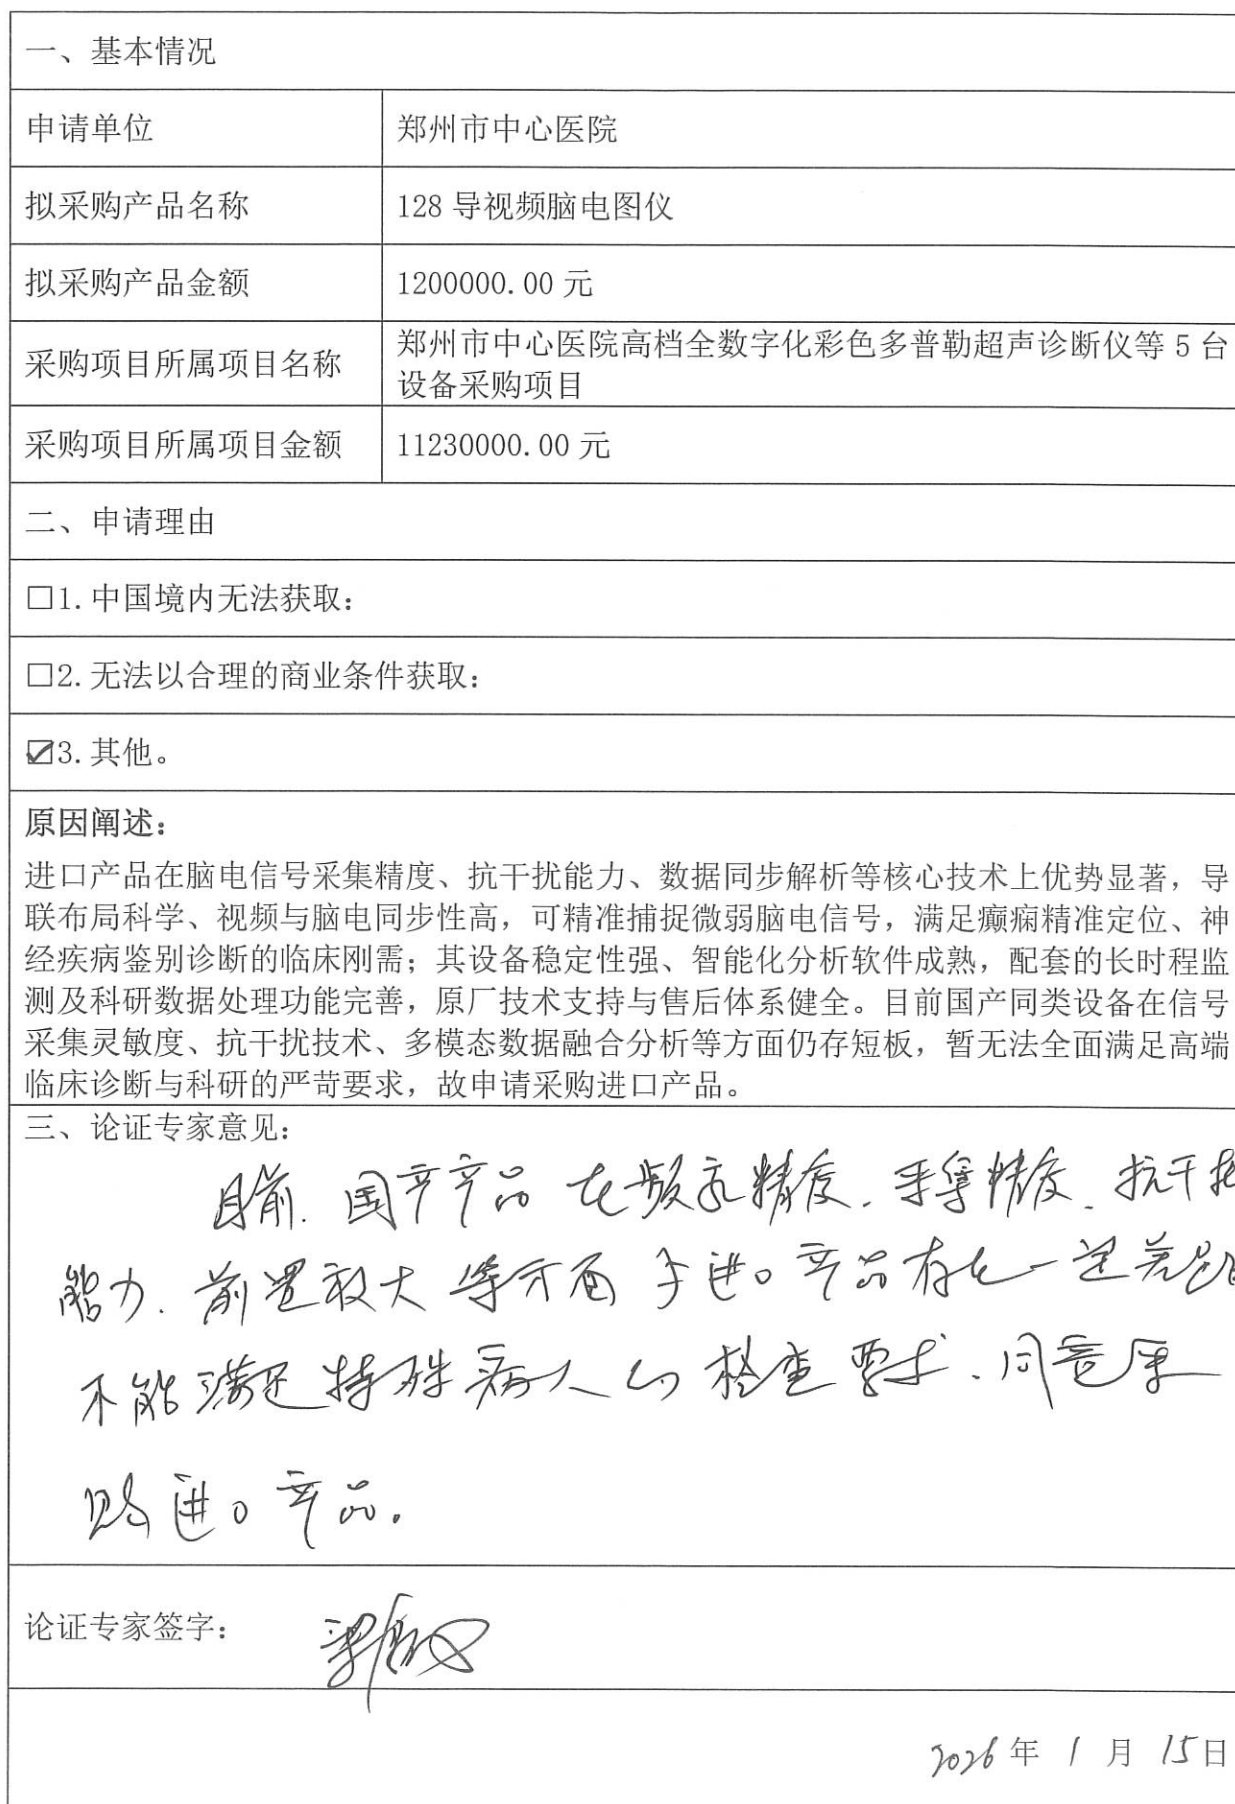 一、基本情况
申请单位
郑州市中心医院
拟采购产品名称
128 导视频脑电图仪
拟采购产品金额
1200000.00 元
采购项目所属项目名称
郑州市中心医院高档全数字化彩色多普勒超声诊断仪等 5 台
设备采购项目
采购项目所属项目金额
11230000.00 元
二、申请理由
□1.中国境内无法获取：
□2.无法以合理的商业条件获取：
☑3.其他。
原因阐述：
进口产品在脑电信号采集精度、抗干扰能力、数据同步解析等核心技术上优势显著，导
联布局科学、视频与脑电同步性高，可精准捕捉微弱脑电信号，满足癫痫精准定位、神
经疾病鉴别诊断的临床刚需；其设备稳定性强、智能化分析软件成熟，配套的长时程监
测及科研数据处理功能完善，原厂技术支持与售后体系健全。目前国产同类设备在信号
采集灵敏度、抗干扰技术、多模态数据融合分析等方面仍存短板，暂无法全面满足高端
临床诊断与科研的严苛要求，故申请采购进口产品。
三、论证专家意见：
目前.国产产品在 精度. 精度.抗干扰
能力.前置放大等方面与进口产品存在一定差距
不能满足特殊病人的检查要求.同意采
购进口产品.
论证专家签字：
2026年 1 月 15日